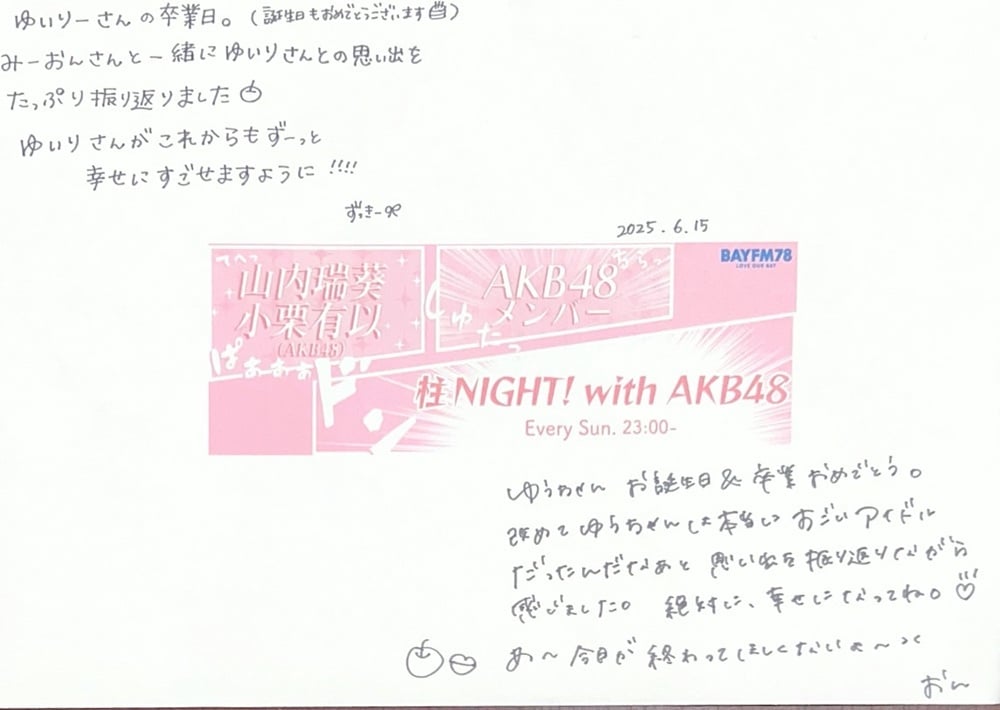 ゆいりーさんの卒業日。(誕生日もおめでとうございます)
みーおんさんと一緒にゆいりさんとの思い出を
たっぷり振り返りました
ゆいりさんがこれからもずーっと
幸せにすごせますように!!!!
ずっきー
2025.6.15
てへっ
山内瑞葵
小栗有以
(AKB48)
AKB48
メンバー
ちらっ
BAYFM78
LOVE OUR BAY
しゅたっ
ぱぁぁぁぁ
ド
柱NIGHT! with AKB48
Every Sun. 23:00-
お誕生日&卒業おめでとう。
改めてゆうちゃんは本当に すごいアイドル
だったんだなあと 思い出を振り返りながら
感じました。 絶対に、幸せになってね。
あ〜今日が終わってほしくないよ〜
おん